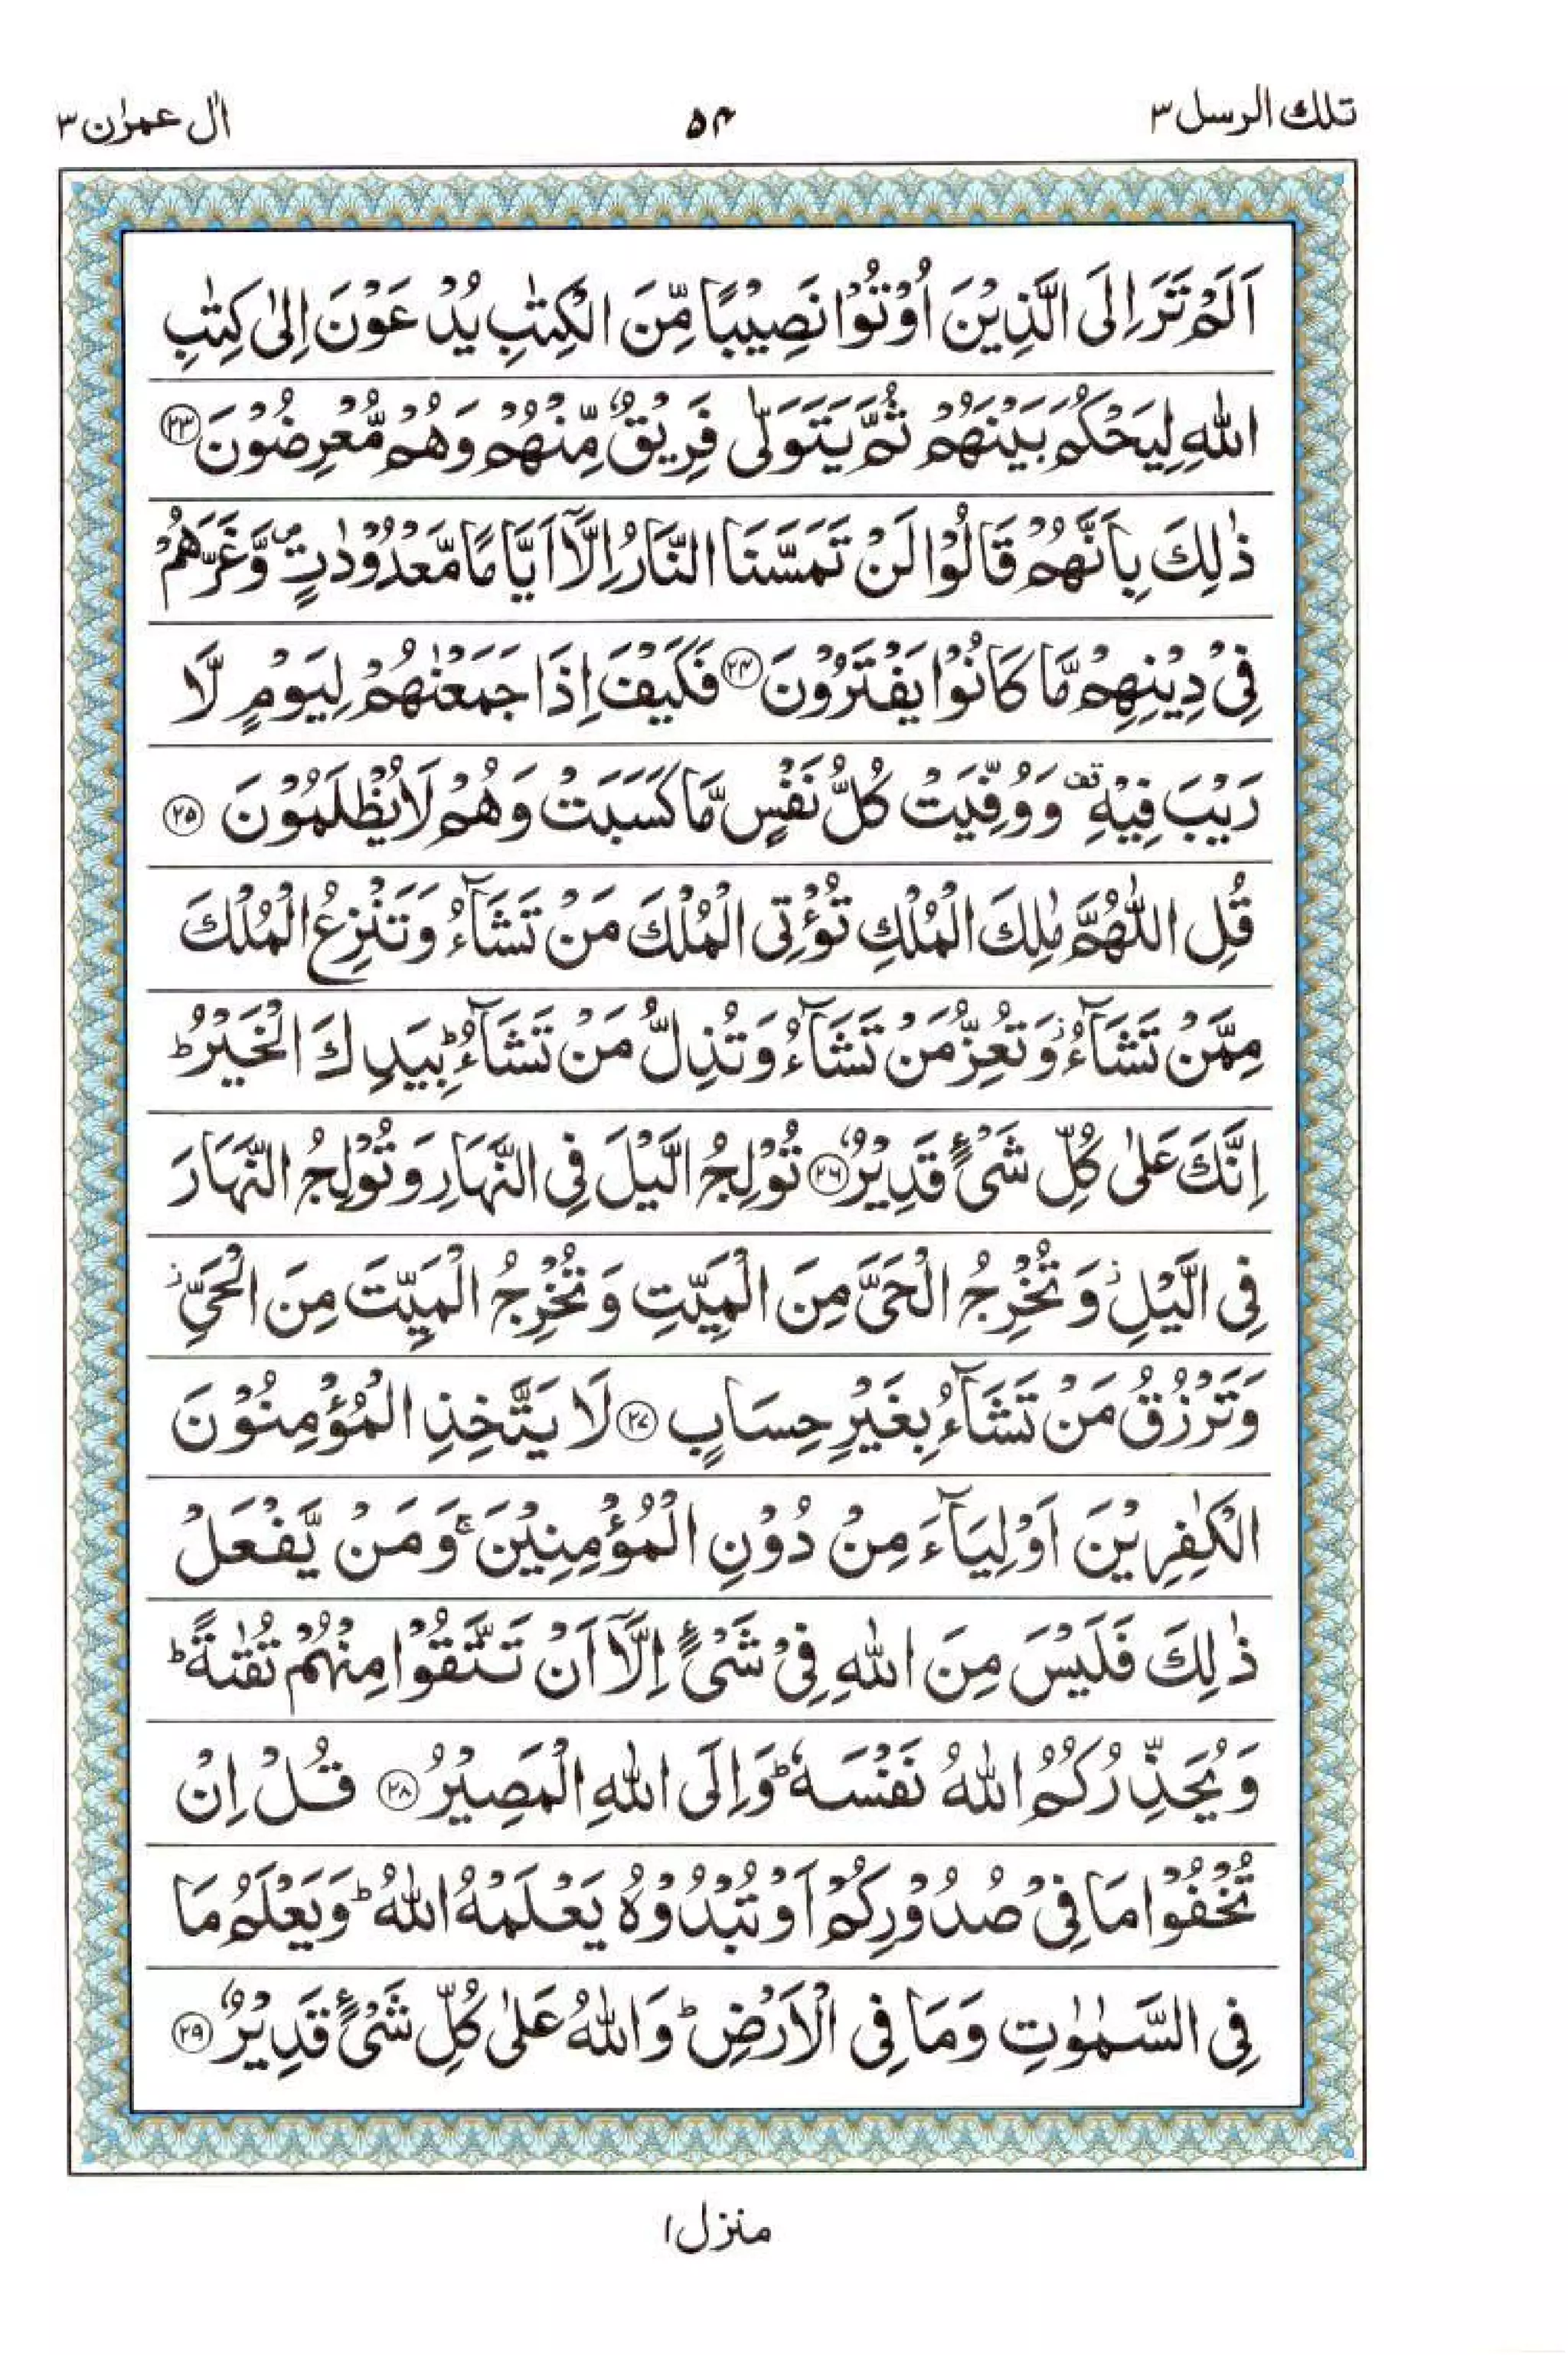 تلك الرسل ٣
٥٤
اٰل عمرٰن ٣
اَلَمْ تَرَ اِلَى الَّذِيْنَ اُوْتُوْا نَصِيْبًا مِّنَ الْكِتٰبِ يُدْعَوْنَ اِلٰى كِتٰبِ
اللّٰهِ لِيَحْكُمَ بَيْنَهُمْ ثُمَّ يَتَوَلّٰى فَرِيْقٌ مِّنْهُمْ وَهُمْ مُّعْرِضُوْنَ ﴿٢٣﴾
ذٰلِكَ بِاَنَّهُمْ قَالُوْا لَنْ تَمَسَّنَا النَّارُ اِلَّاۤ اَيَّامًا مَّعْدُوْدٰتٍ ۪ وَّغَرَّهُمْ
فِيْ دِيْنِهِمْ مَّا كَانُوْا يَفْتَرُوْنَ ﴿٢٤﴾ فَكَيْفَ اِذَا جَمَعْنٰهُمْ لِيَوْمٍ لَّا
رَيْبَ فِيْهِ ۫ وَوُفِّيَتْ كُلُّ نَفْسٍ مَّا كَسَبَتْ وَهُمْ لَا يُظْلَمُوْنَ ﴿٢٥﴾
قُلِ اللّٰهُمَّ مٰلِكَ الْمُلْكِ تُؤْتِي الْمُلْكَ مَنْ تَشَآءُ وَتَنْزِعُ الْمُلْكَ
مِمَّنْ تَشَآءُ ؗ وَتُعِزُّ مَنْ تَشَآءُ وَتُذِلُّ مَنْ تَشَآءُ ؕ بِيَدِكَ الْخَيْرُ ؕ
اِنَّكَ عَلٰى كُلِّ شَيْءٍ قَدِيْرٌ ﴿٢٦﴾ تُوْلِجُ الَّيْلَ فِي النَّهَارِ وَتُوْلِجُ النَّهَارَ
فِي الَّيْلِ ؗ وَتُخْرِجُ الْحَيَّ مِنَ الْمَيِّتِ وَتُخْرِجُ الْمَيِّتَ مِنَ الْحَيِّ ؗ
وَتَرْزُقُ مَنْ تَشَآءُ بِغَيْرِ حِسَابٍ ﴿٢٧﴾ لَا يَتَّخِذِ الْمُؤْمِنُوْنَ
الْكٰفِرِيْنَ اَوْلِيَآءَ مِنْ دُوْنِ الْمُؤْمِنِيْنَ ۚ وَمَنْ يَّفْعَلْ
ذٰلِكَ فَلَيْسَ مِنَ اللّٰهِ فِيْ شَيْءٍ اِلَّاۤ اَنْ تَتَّقُوْا مِنْهُمْ تُقٰىةً ؕ
وَيُحَذِّرُكُمُ اللّٰهُ نَفْسَهٗ ؕ وَاِلَى اللّٰهِ الْمَصِيْرُ ﴿٢٨﴾ قُلْ اِنْ
تُخْفُوْا مَا فِيْ صُدُوْرِكُمْ اَوْ تُبْدُوْهُ يَعْلَمْهُ اللّٰهُ ؕ وَيَعْلَمُ مَا
فِي السَّمٰوٰتِ وَمَا فِي الْاَرْضِ ؕ وَاللّٰهُ عَلٰى كُلِّ شَيْءٍ قَدِيْرٌ ﴿٢٩﴾
منزل ١